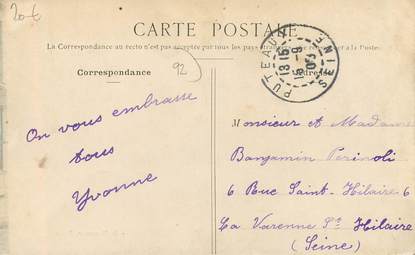 20€
CARTE POSTALE
La Correspondance au recto n'est pas acceptée par tous les pays
à la Poste
Correspondance
92
PUTEAUX SEINE
13 15
5 - 9
05
On vous embrasse
tous
Yvonne
Monsieur et Madame
Bangamin Perinoli
6 Rue Saint-Hilaire 6
La Varenne St Hilaire
(Seine)